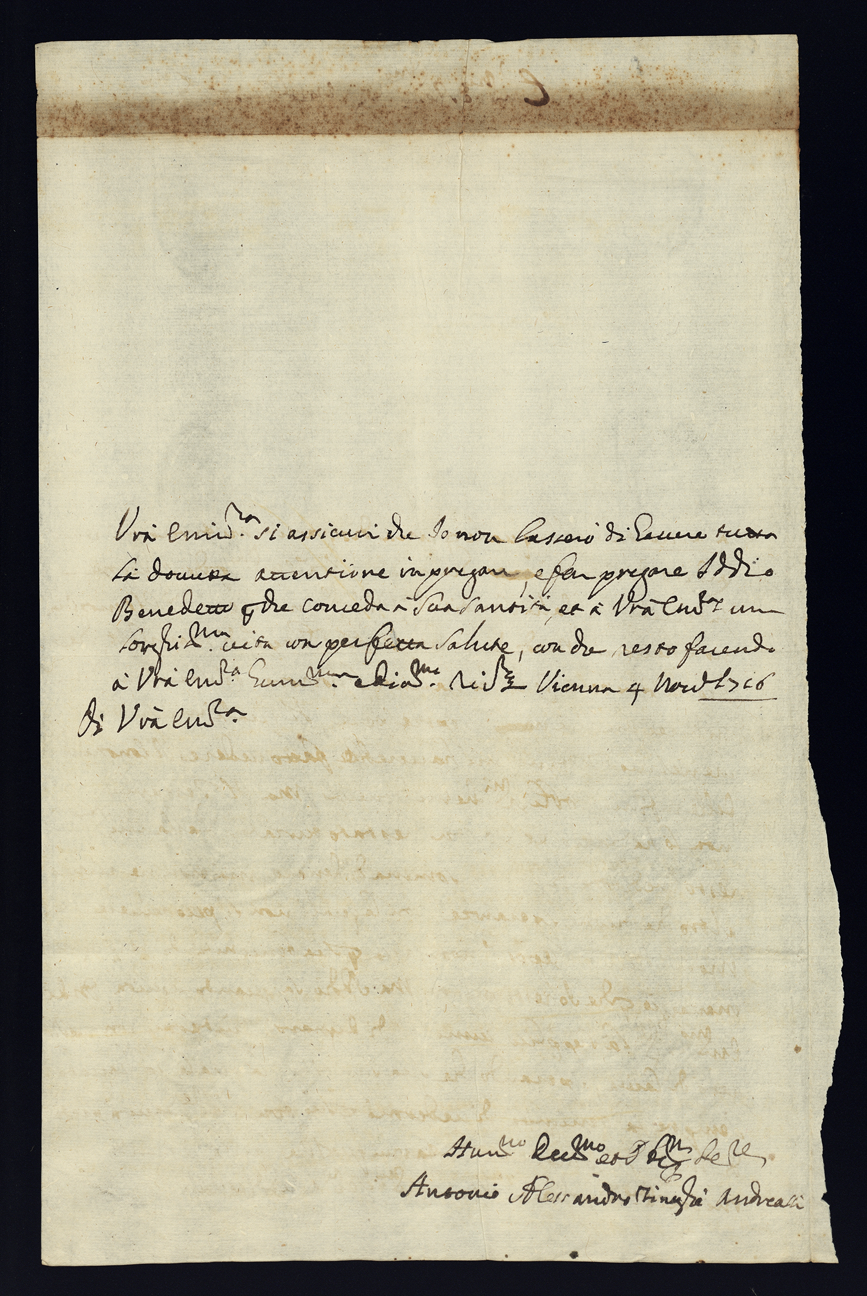 Vrã Emin.za si assicuri che Io non lascerò di havere tutta
la dovuta attentione in pregare, e far pregare Iddio
Benedetto che conceda à Sua Santità, et à Vrã Em.za una
longhis.ma vita con perfetta salute, con che resto facendo
à Vrã Em.za Humi.ma Vienna 4 Nov. 1716
Di Vrã Em.za
Hum.mo et Se.re
Antonio Alessandro Andreasi